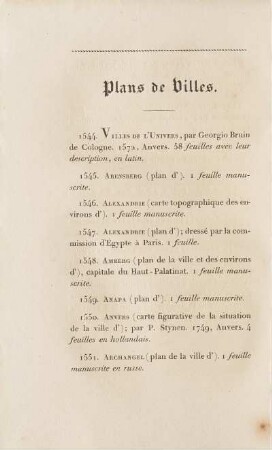 Plans de Villes.
1544. VILLES DE L'UNIVERS, par Georgio Bruin
de Cologne. 1572, Anvers. 58 feuilles avec leur
description, en latin.
1545. ARENSBERG (plan d'). 1 feuille manu-
scrite.
1546. ALEXANDRIE (carte topographique des en-
virons d'). 1 feuille manuscrite.
1547. ALEXANDRIE (plan d'); dressé par la com-
mission d'Egypte à Paris. 1 feuille.
1548. AMBERG (plan de la ville et des environs
d'), capitale du Haut-Palatinat. 1 feuille manu-
scrite.
1549. ANAPA (plan d'). 1 feuille manuscrite.
1550. ANVERS (carte figurative de la situation
de la ville d'); par P. Stynen. 1749, Anvers. 4
feuilles en hollandais.
1551. ARCHANGEL (plan de la ville d'). 1 feuille
manuscrite en russe.